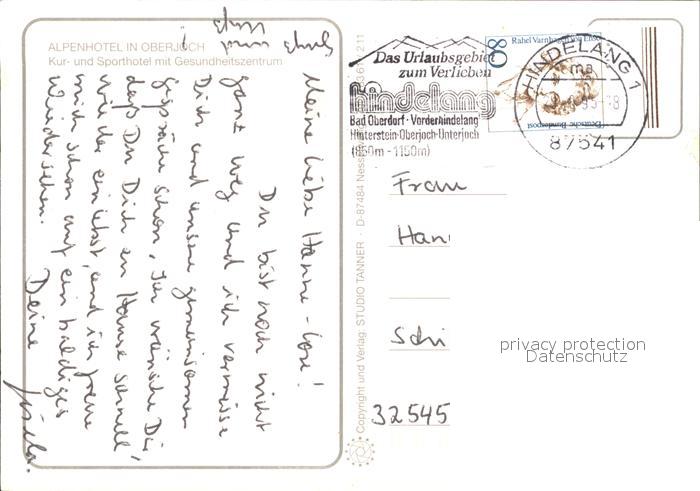 ALPENHOTEL IN OBERJOCH
Kur- und Sporthotel mit Gesundheitszentrum
Meine liebe Hanne-Lore!
Du bist noch nicht
ganz weg und ich vermisse
Dich und unsere gemeinsamen
Gespräche schon. Ich wünsche Dir,
daß Du Dich zu Hause schnell
wieder einlebst, und ich freue
mich schon auf ein baldiges
Wiedersehen.
Deine
Gisela.
Copyright und Verlag: STUDIO TANNER · D-87484 Ness
211
Das Urlaubsgebiet
zum Verlieben
hindelang
Bad Oberdorf · Vorderhindelang
Hinterstein-Oberjoch-Unterjoch
(850m - 1150m)
80
Rahel Varnhagen von Ense
Deutsche Bundespost
HINDELANG 1
ma
87541
Frau
Han
Sch
32545
privacy protection
Datenschutz